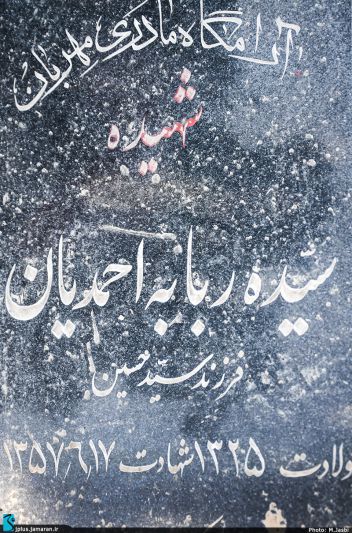 آرامگاه مادری مهربان
شهیده
سیّده ربابه احمدیان
فرزند سیّد حسین
ولادت ۱۳۲۵ شهادت ۱۳۵۷/۶/۱۷
jplus.jamaran.ir
Photo: M.Jasbi